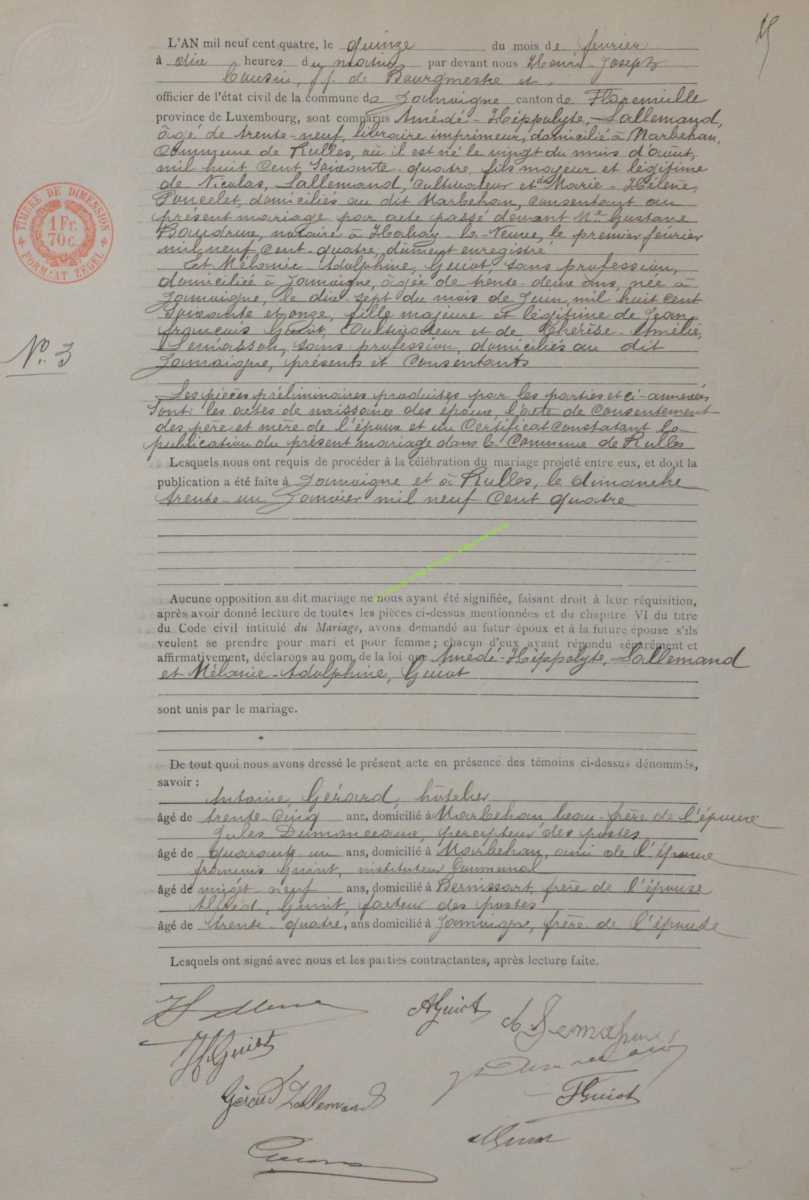 15
L'AN mil neuf cent quatre, le quinze du mois de février
à dix heures du matin par devant nous Henri-Joseph
Cousin, f.f. de Bourgmestre et
officier de l'état civil de la commune de Jamoigne canton de Florenville
province de Luxembourg, sont comparus Amédé-Hippolyte, Lallemand,
âgé de trente-neuf, libraire imprimeur, domicilié à Marbehan,
Commune de Rulles, où il est né le vingt du mois d'août,
mil huit cent soixante-quatre, fils majeur et légitime
de Nicolas, Lallemand, Cultivateur et de Marie-Hélène,
Poncelet, domiciliés au dit Marbehan, consentant au
présent mariage par acte passé devant Me Gustave
notaire à Habay-la-Neuve, le premier février
mil neuf cent-quatre, dûment enregistré
Et Mélanie Adolphine, Guiot, sans profession,
domiciliée à Jamoigne, âgée de trente-deux ans, née à
Jamoigne, le dix sept du mois de Juin, mil huit cent
soixante et onze, fille majeure et légitime de Jean
François Guiot, Cultivateur et de Thérèse-Amélie,
sans profession, domiciliés au dit
Jamoigne, présents et Consentants
N° 3
TIMBRE DE DIMENSION
1 Fr. 70 c.
FORMAAT ZEGEL
Les pièces préliminaires produites par les parties et ci-annexées
sont: les actes de naissance des époux, l'acte de Consentement
des père et mère de l'époux et un Certificat constatant la
publication du présent mariage dans la Commune de Rulles
Lesquels nous ont requis de procéder à la célébration du mariage projeté entre eux, et dont la
publication a été faite à Jamoigne et à Rulles, le dimanche
trente-un Janvier mil neuf Cent quatre
Aucune opposition au dit mariage ne nous ayant été signifiée, faisant droit à leur réquisition,
après avoir donné lecture de toutes les pièces ci-dessus mentionnées et du chapitre VI du titre
du Code civil intitulé du Mariage, avons demandé au futur époux et à la future épouse s'ils
veulent se prendre pour mari et pour femme; chacun d'eux ayant répondu séparément et
affirmativement, déclarons au nom de la loi que Amédé-Hippolyte, Lallemand
et Mélanie-Adolphine, Guiot
sont unis par le mariage.
De tout quoi nous avons dressé le présent acte en présence des témoins ci-dessus dénommés,
savoir :
Antoine, Gérard, hôtelier
âgé de trente-cinq ans, domicilié à Marbehan beau-frère de l'épouse
Jules percepteur des postes
âgé de quarante un ans, domicilié à Marbehan, ami de l'épouse
François Guiot, instituteur Communal
âgé de vingt-neuf ans, domicilié à Bernissart, frère de l'épouse
Guiot, facteur des postes
âgé de trente-quatre, ans domicilié à Jamoigne, frère de l'épouse
Lesquels ont signé avec nous et les parties contractantes, après lecture faite.
AGuiot
Guiot
FGuiot
Gérard Lallemand